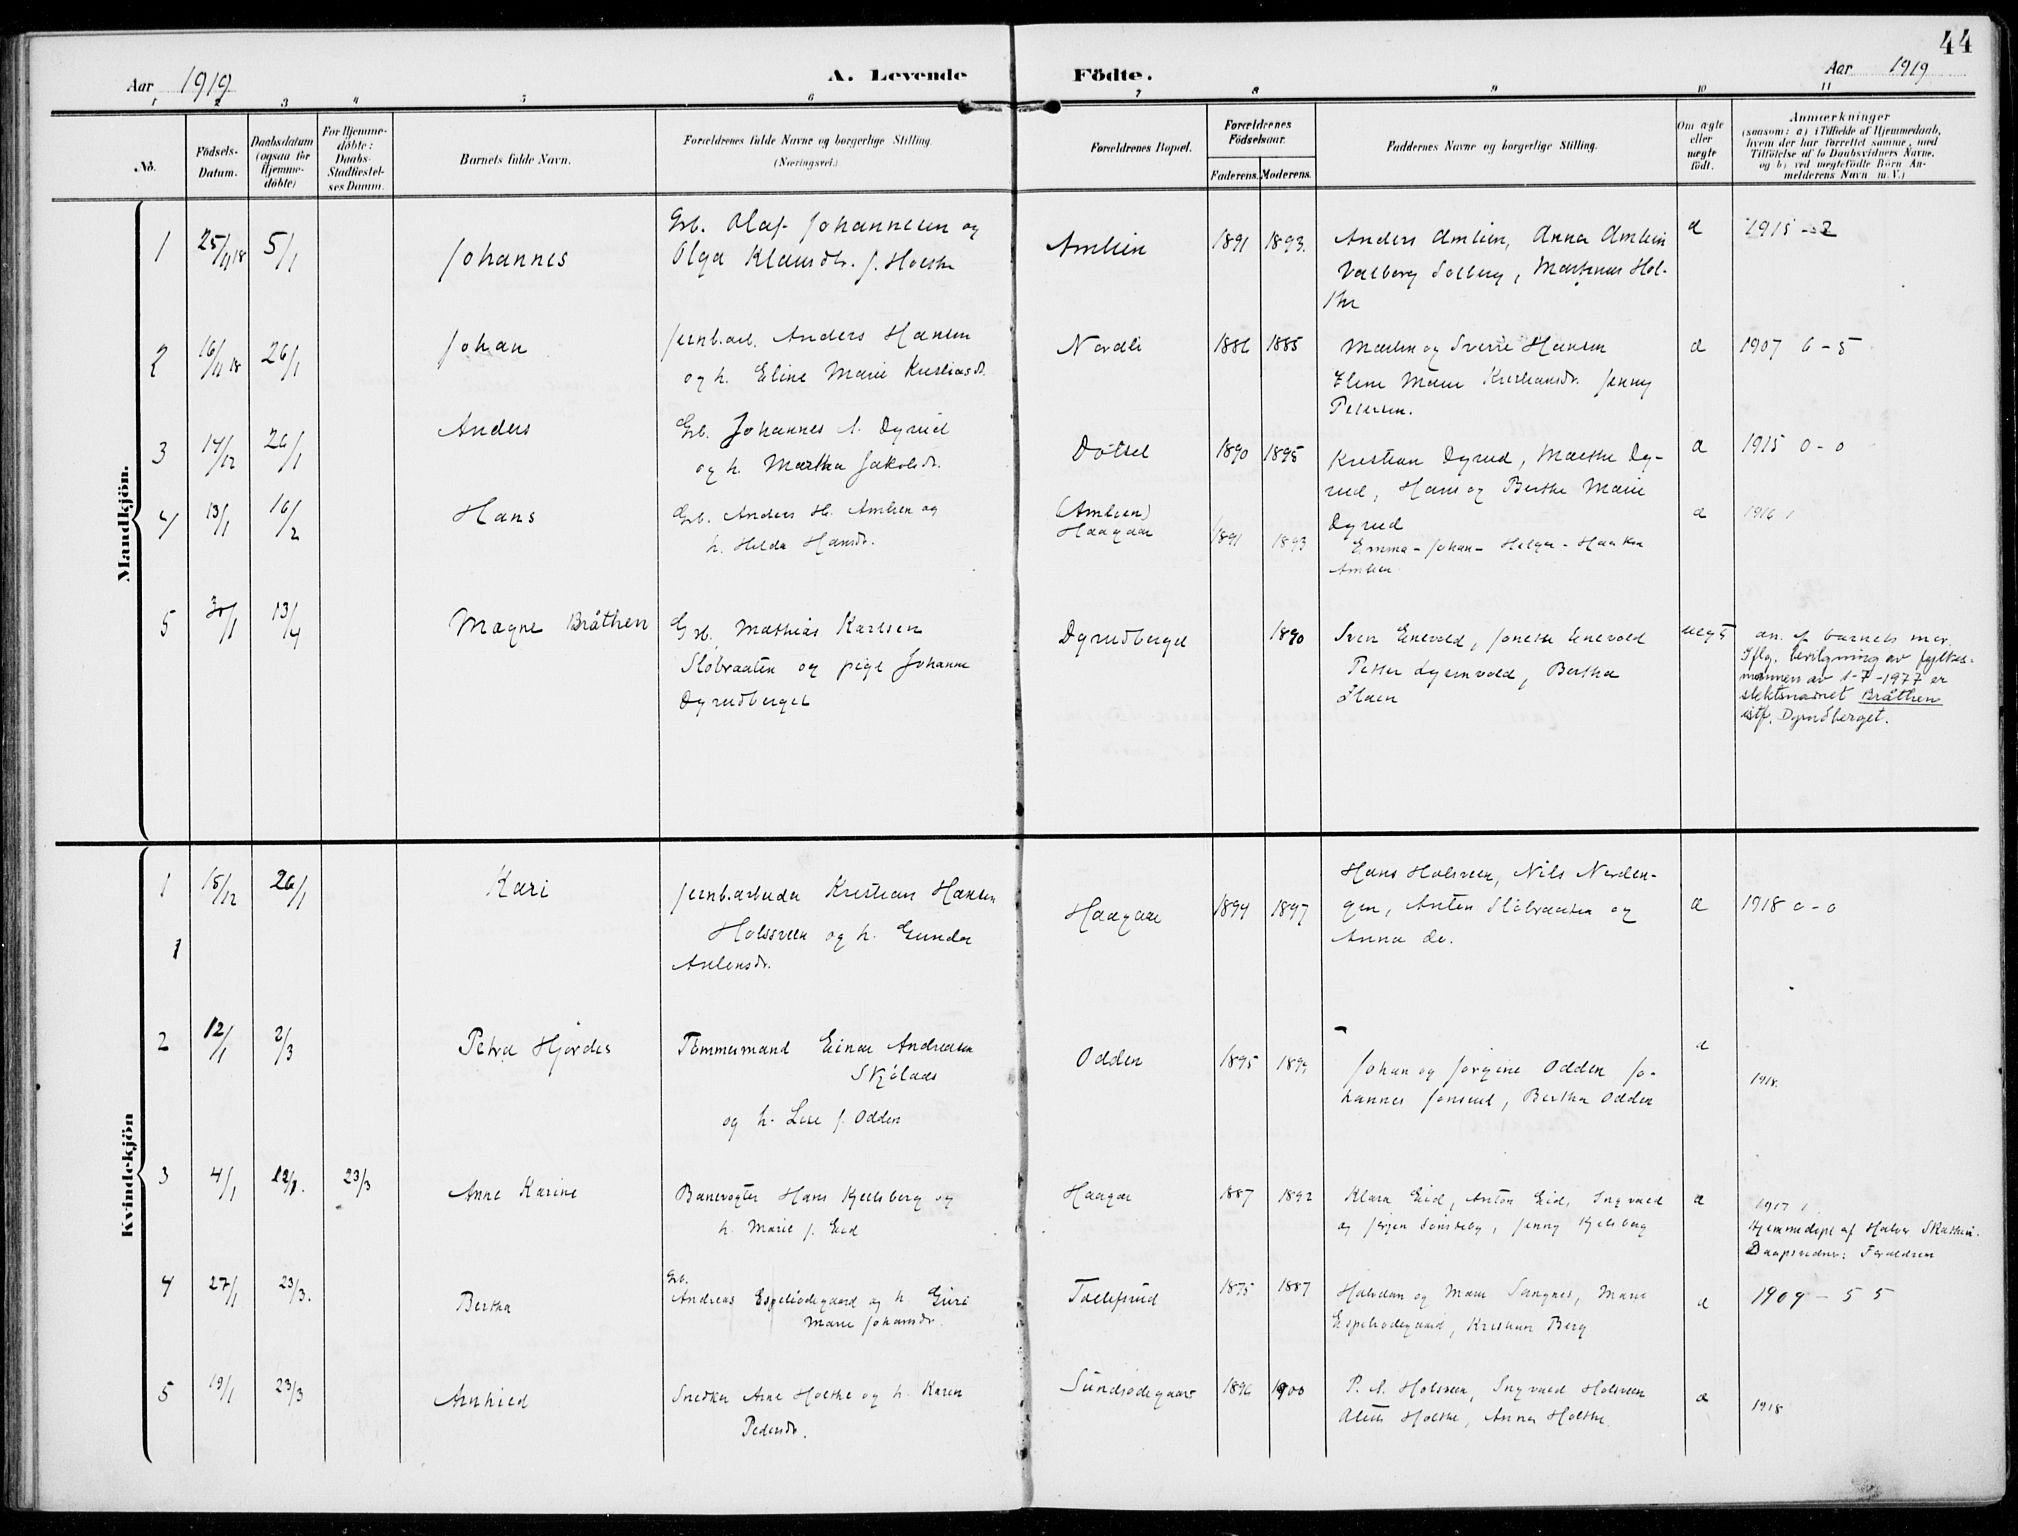 44
Aar 1919
A. Levende
Födte.
Aar 1919
1 2 3 4 5 6 7 8 9 10 11
No.
Födsels-
Datum.
Daabsdatum
(ogsaa for
Hjemme-
døbte)
For Hjemme-
døbte:
Daabs-
Stadfæstel-
ses Datum.
Barnets fulde Navn.
Forældrenes fulde Navne og borgerlige Stilling.
(Næringsvei.)
Forældrenes Bopæl.
Forældrenes
Födselsaar.
Faderens. Moderens.
Faddernes Navne og borgerlige Stilling.
Om ægte
eller
uægte
født.
Anmærkninger
(saasom: a) i Tilfælde af Hjemmedaab,
hvem der har forrettet samme, med
Tilföielse af to Daabsvidners Navne,
og b) ved uægtefödte Börn An-
melderens Navn m. V.)
Mandkjön.
1 25/11 18 5/1 Johannes
Grb. Olaf Johannesen og
Olga Klausdtr. f. Holthe
Amlien 1891 1893.
Anders Amlien, Anna Amlien
Valborg Solberg, Marthinus Hol-
the
æ 1915 - 2
2 16/11 18 26/1 Johan
Jernb.arb. Anders Hansen
og h. Eline Marie Kristiansdr.
Nordli 1886 1885
Martin og Sverre Hansen
Eline Marie Kristiansdr. Jenny
Petersen.
æ 1907 6 - 5
3 14/12 26/1 Anders
Grb. Johannes A. Dyrud
og h. Martha Jakobsdr.
Dölset 1890 1895
Kristian Dyrud, Marthe Dy-
rud, Hans og Berthe Marie
Dyrud
æ 1915 0 - 0
4 13/1 16/2 Hans
Grb. Anders H. Amlien og
h. Helda Hansdr.
(Amlien)
Haagaar
1891 1893
Emma - Johan - Helga - Haaken
Amlien
æ 1916 1
5 30/1 13/4 Magne Bråthen
Grb. Mathias Karlsen
Slöbraaten og pige Johanne
Dyrudberget
Dyrudberget 1890
Sven Enevold, Jonette Enevold
Petter Lyernvold, Bertha
Haen
uegt
an. af barnets mor.
Iflg. bevilgning av fylkes-
mannen av 1-7-1977 er
slektsnavnet Bråthen
istf. Dyrudberget.
Kvindekjön
1 15/12 26/1 Kari
Jernb.arbeider Kristian Hansen
Holsveen og h. Gunda
Antensdr.
Haagaar 1894 1897
Hans Holsveen, Nils Norden-
gen, Anton Slöbraaten og
Anna do.
æ 1918 0 - 0
1
2 12/1 2/3 Petra Hjördis
Tömmermand Einar Andreasen
Skjölaas
og h. Lise f. Odden
Odden 1895 1894
Johan og Jörgine Odden Jo-
hannes Jonsrud, Bertha Odden
æ 1918.
3 4/1 12/1. 23/3 Anne Karine
Banevogter Hans Kjelsberg og
h. Marie f. Eid
Haagaar 1887 1892
Klara Eid, Anton Eid, Ingvald
og Jörgen Sönsteby, Jenny Kjelsberg
æ 1917 1
Hjemmedöpt af Halvor Skattum.
Daapsvidner: Foreldrene
4 27/1 23/3. Bertha
Grb.
Andreas Espeliödegaard og h. Guri
Marie Johansdr.
Tollefsrud 1875 1887
Halvdan og Marie Sangnes, Marie
Espeliödegaard, Kristian Berg
æ 1909 - 5 5
5 19/1 23/3 Arnhild
Snedker Arne Holthe og h. Karen
Pedersdr.
Sundsödegaard 1896 1900
P. A. Holsveen, Ingvald Holsveen
Aleth Holthe, Anna Holthe
æ 1918